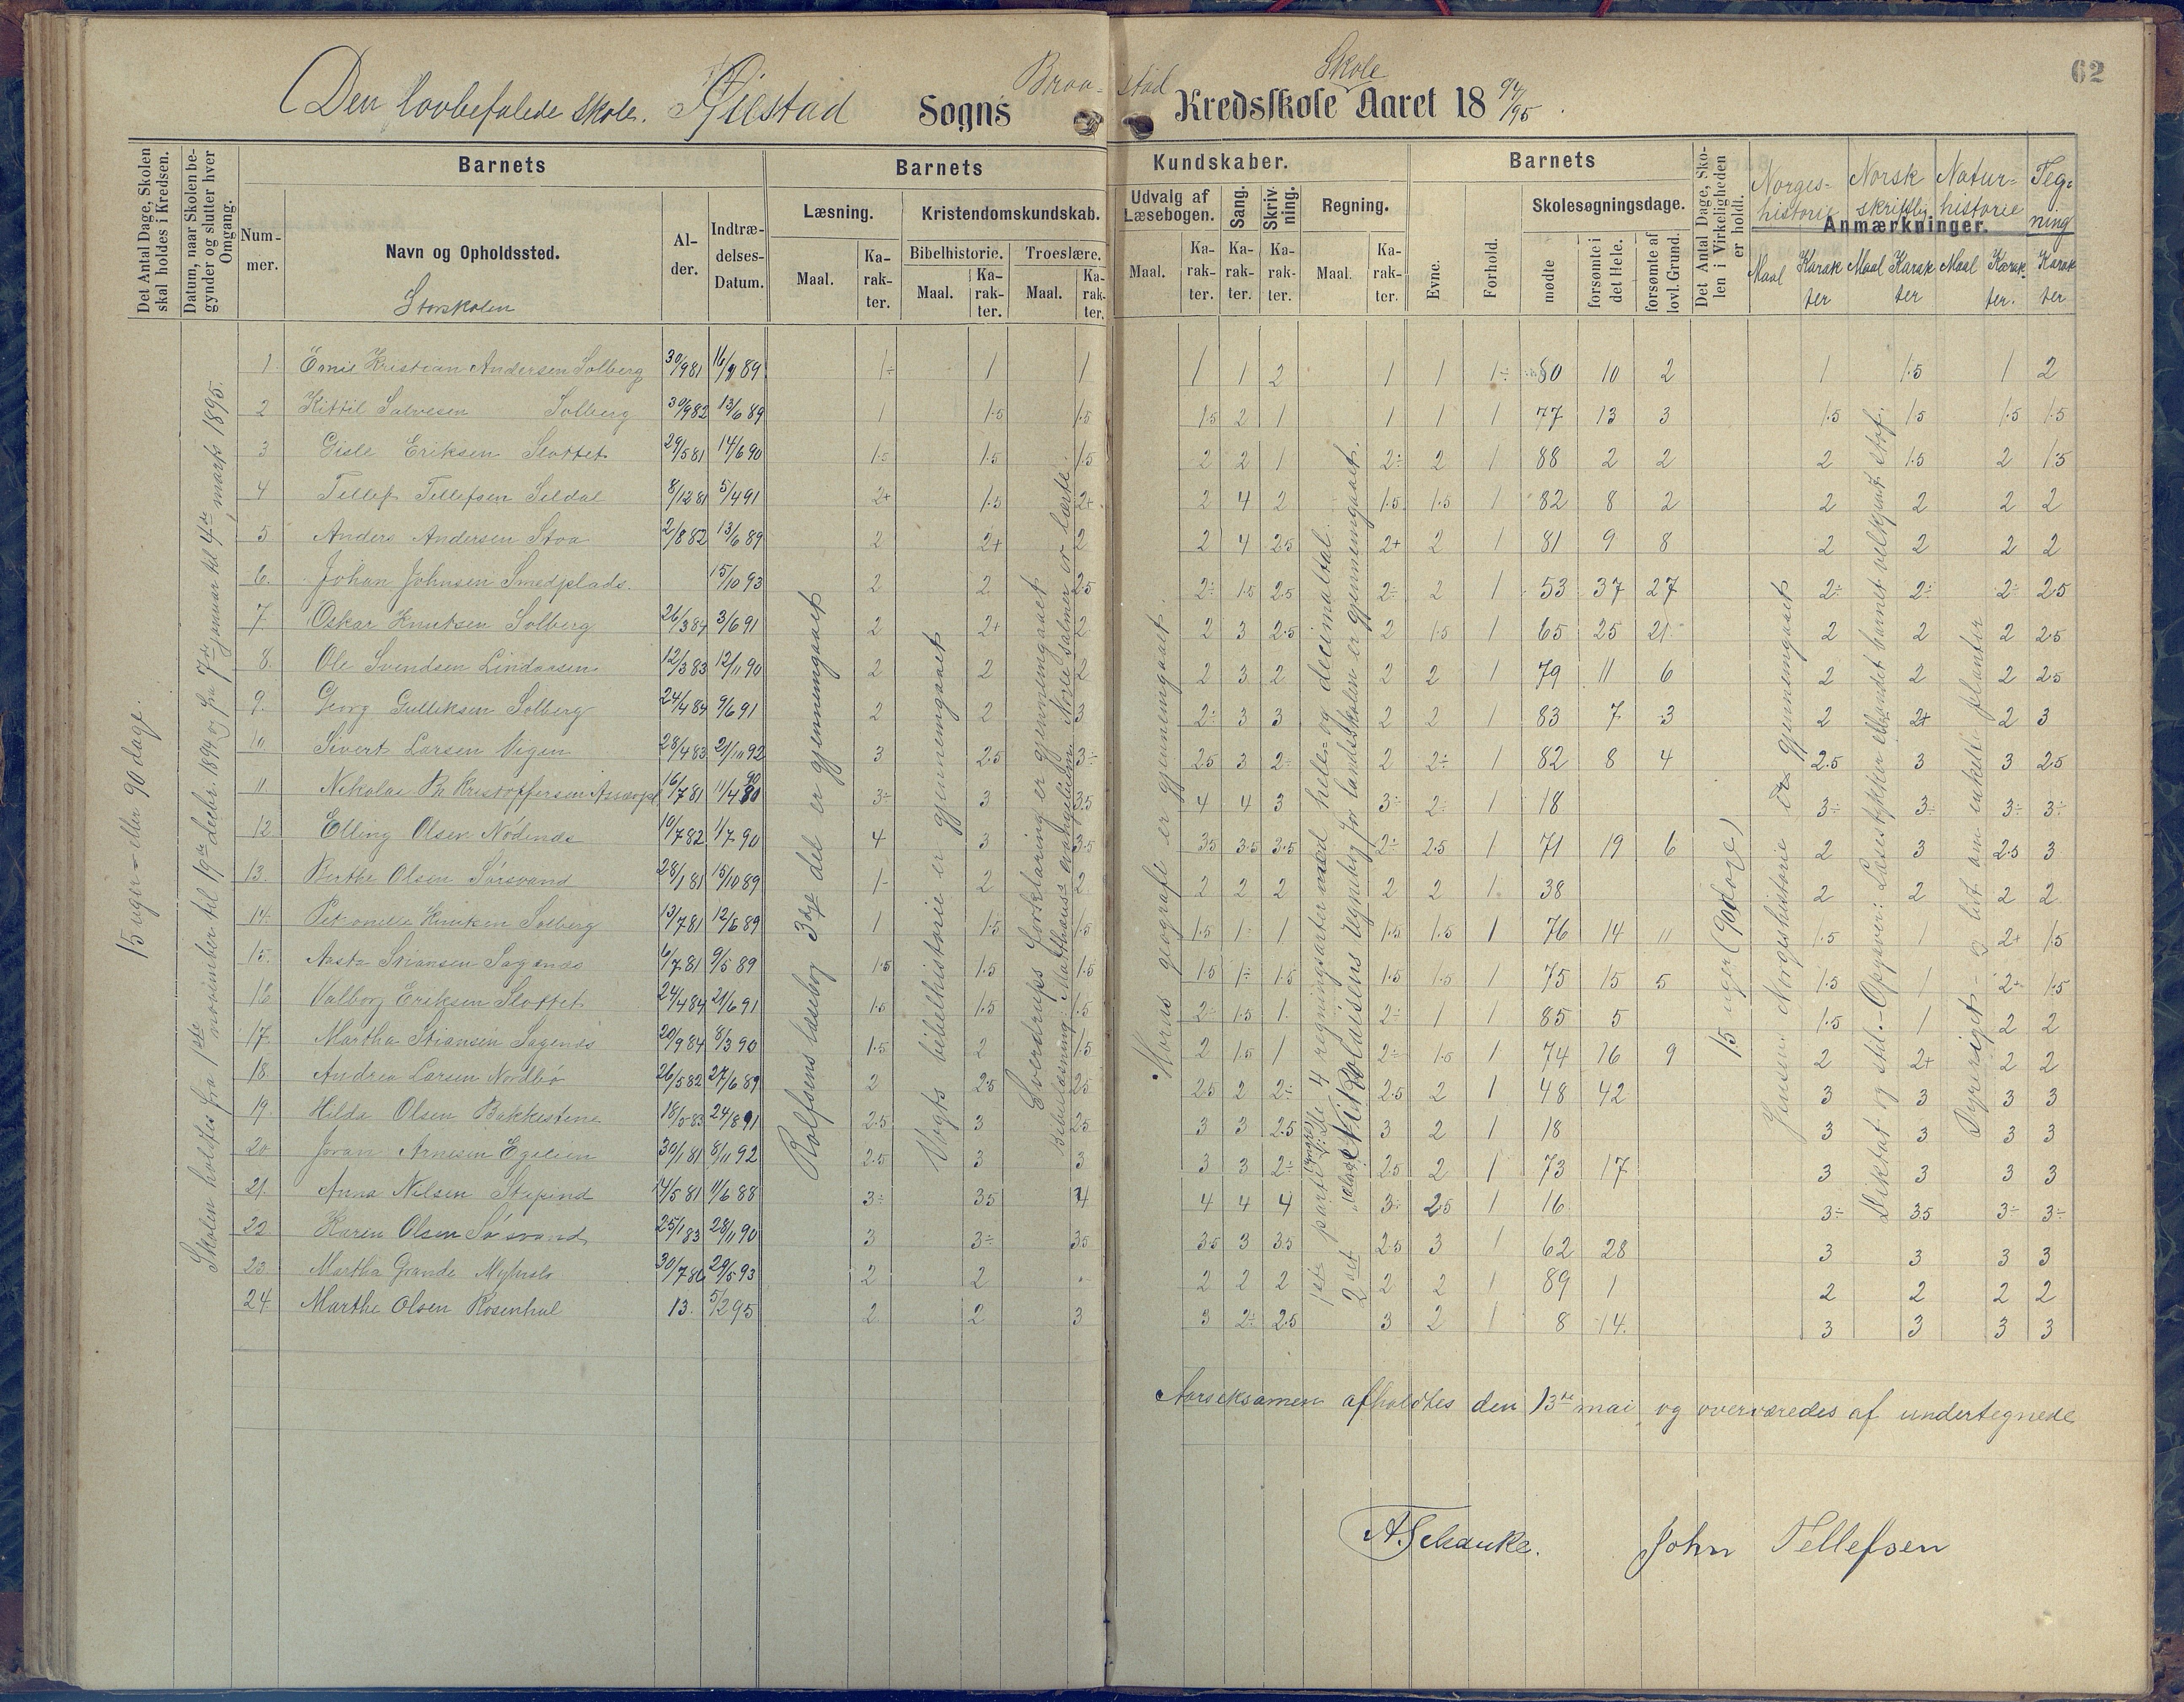 62
Den lovbefalede skole. Øiestad Sogns Braastad Skole Kredsskole Aaret 18 94/95.
Det Antal Dage, Skolen skal holdes i Kredsen.
Datum, naar Skolen begynder og slutter hver Omgang.
Barnets
Nummer.
Navn og Opholdssted.
Storskolen
Alder.
Indtrædelses-Datum.
Barnets Kundskaber.
Læsning.
Maal. Karakter.
Kristendomskundskab.
Bibelhistorie. Maal. Karakter.
Troeslære. Maal. Karakter.
Udvalg af Læsebogen. Maal. Karakter.
Sang. Karakter.
Skrivning. Karakter.
Regning. Maal. Karakter.
Barnets
Evne.
Forhold.
Skolesøgningsdage.
mødte
forsømte i det Hele.
forsømte af lovl. Grund.
Det Antal Dage, Skolen i Virkeligheden er holdt.
Anmærkninger.
Norgeshistorie Maal Karakter
Norsk skriftlig Maal Karakter
Naturhistorie Maal Karakter.
Tegning Karakter
15 uger - eller 90 dage.
Skolen holdtes fra 1ste november til 19de decbr. 1894 og fra 7de januar til 4de marts 1895.
Rolfsens læsebog 3dje del er gjennemgaaet
Vogts bibelhistorie er gjennemgaaet
Sverdrups forklaring er gjennemgaaet
Bibellæsning: Matthæus evangelium. Nogle salmer er lærte.
Horns geografi er gjennemgaaet.
1ste parti: De 4 regningsarter med hele og decimaltal.
2det Nikolaisens regnebog for landsskolen er gjennemgaaet.
15 uger (90 dage)
Jensens Norgeshistorie er gjennemgaaet
Diktat og stil. - Opgaver: Læsestykker eller andet barnet velkjendt stof.
Dyreriget - og lidt om enkelte planter
1 Kristian Andersen Solberg 30/9 81 89 1÷ 1 1 1 1 2 1 1 1÷ 80 10 2 1 1.5 1 2
2 Kittil Salvesen Solberg 30/9 82 13/6 89 1 1.5 1.5 1.5 2 1 1 1 1 77 13 3 1.5 1.5 1.5 1.5
3 Gisle Eriksen Slottet 29/5 81 14/6 90 1.5 1.5 1.5 2 2 1 2÷ 2 1 88 2 2 2 1.5 2 1.5
4 Tellef Tellefsen Seldal 8/12 81 5/4 91 2+ 1.5 2+ 2 4 2 1.5 1.5 1 82 8 2 2 2 2 2
5 Anders Andersen Stoa 2/8 82 13/6 89 2 2+ 2 2 4 2.5 2+ 2 1 81 9 8 2 2 2 2
6. Johan Johnsen Smedplads. 15/10 93 2 2 2.5 2÷ 1.5 2.5 2÷ 2 1 53 37 27 2÷ 2÷ 2÷ 2.5
7. Oskar Knutsen Solberg 26/3 84 3/6 91 2 2+ 2 2 3 2.5 2 1.5 1 65 25 21 2 2 2 2.5
8. Ole Svendsen Lindaasen 12/3 83 12/11 90 2 2 2 2 3 2 2 2 1 79 11 6 2 2 2 2.5
9. Georg Gulliksen Solberg 24/4 84 9/6 91 2 2 3 2÷ 3 3 2 2 1 83 7 3 2 2+ 2 3
10 Sivert Larsen Vigen 28/4 83 21/11 92 3 2.5 3÷ 2.5 3 2÷ 2 2÷ 1 82 8 4 2.5 3 3 2.5
11. Nikolai Kristoffersen 16/7 81 11/4 90 3÷ 3 3.5 4 4 3 3÷ 2÷ 1 18 3÷ 3÷ 3÷ 3÷
12 Elling Olsen Nødenes 10/7 82 1/7 90 4 3 3.5 3.5 3.5 3.5 2÷ 2.5 1 71 19 6 2 3 2.5 3
13. Berthe Olsen Sørsvand 28/1 81 15/10 89 1- 2 2 2 2 2 2 2 1 38 2 2 2 2
14. Petronille Knutsen Solberg 13/7 81 12/6 89 1 1.5 1.5 1.5 1÷ 1 1.5 1.5 1 76 14 11 1.5 1 2+ 1.5
15. Aasta Stiansen Sagenes 6/7 81 9/5 89 1.5 1.5 1.5 1.5 1÷ 1.5 1.5 1.5 1 75 15 5 1.5 1 2+ 1.5
16 Valborg Eriksen Slottet 24/4 84 21/6 91 1.5 1.5 1.5 2÷ 1.5 1 2÷ 1 1 85 5 1.5 1 2 2
17. Martha Stiansen Sagenes 20/9 84 8/3 90 1.5 2 1.5 2 1.5 1 2÷ 1.5 1 74 16 9 2 2+ 2 2
18. Andrea Larsen Nordbø 26/5 82 27/6 89 2 2.5 2.5 2.5 2 2÷ 2.5 2 1 48 42 3 3 3 3
19. Hilda Olsen Bakkestene 18/5 83 24/8 91 2.5 3 2.5 3 3 2.5 3 2 1 18 3 3 3 3
20 Joran Arnesen 30/1 81 8/11 92 2.5 3 3 3 3 2÷ 2.5 2 1 73 17 3 3 3 3
21. Anna Nilsen 14/5 81 11/6 88 3÷ 3.5 4 4 4 4 3÷ 2.5 1 16 3÷ 3.5 3÷ 3÷
22. Karen Olsen Sørsvand 25/1 83 28/11 90 3 3÷ 3.5 3.5 3 3.5 2.5 3 1 62 28 3 3 3 3
23. Martha Grande 30/7 80 29/5 93 2 2 2 2 2 2 2 1 89 1 2 2 2 2
24. Marthe Olsen Rosenhal 13. 5/2 95 2 2 3 3 2÷ 2.5 3 2 1 8 14. 3 3 3 3
Aarseksamen afholdtes den 13de mai og overværedes af undertegnede
A. Schanke. John Tellefsen